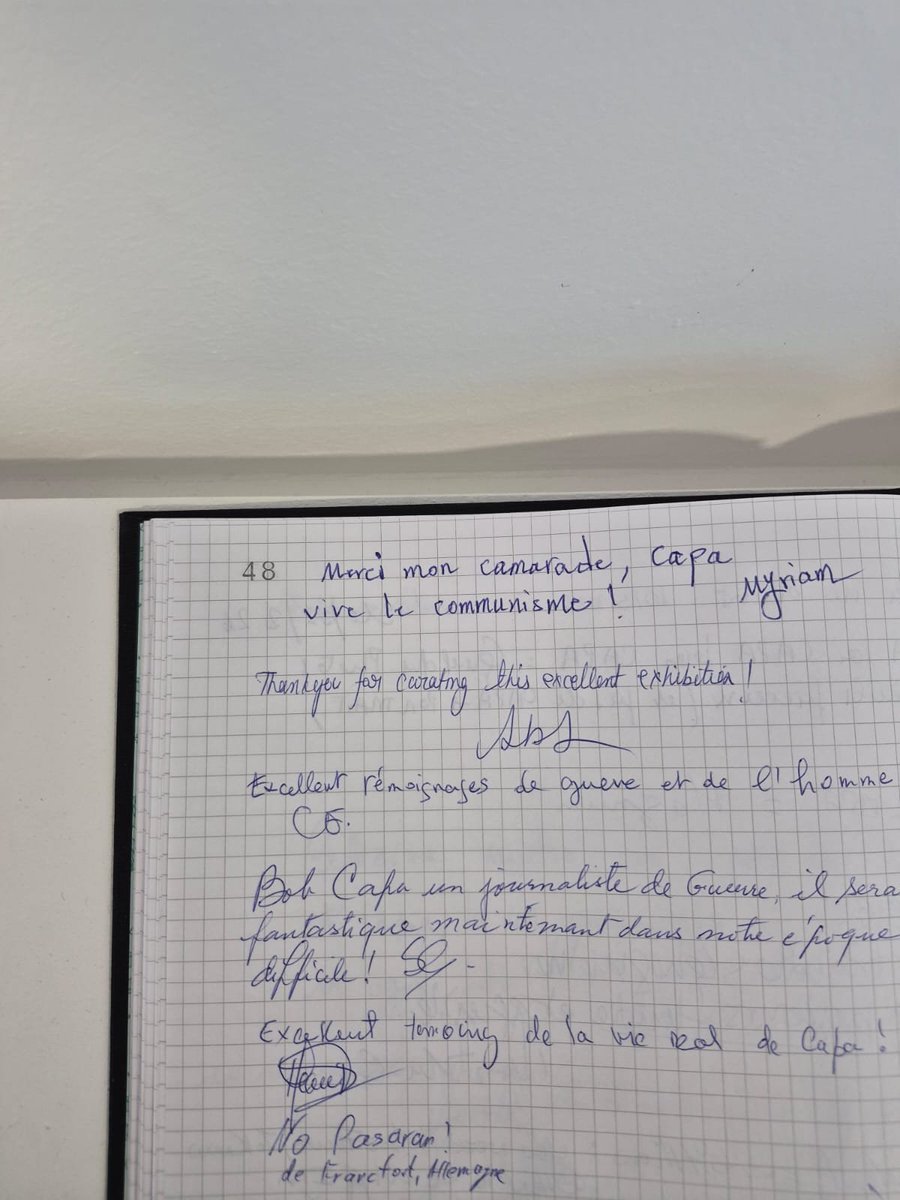 48 Merci mon camarade, Capa
vive le communisme!
Myriam
Thankyou for curating this excellent exhibition!
Excellent témoignages de guerre et de l'homme
CG.
Bob Capa un journaliste de Guerre, il sera
fantastique maintemant dans notre époque
difficile!
Excellent temoing de la vie real de Capa!
No Pasaran!
de Francfort, Allemagne